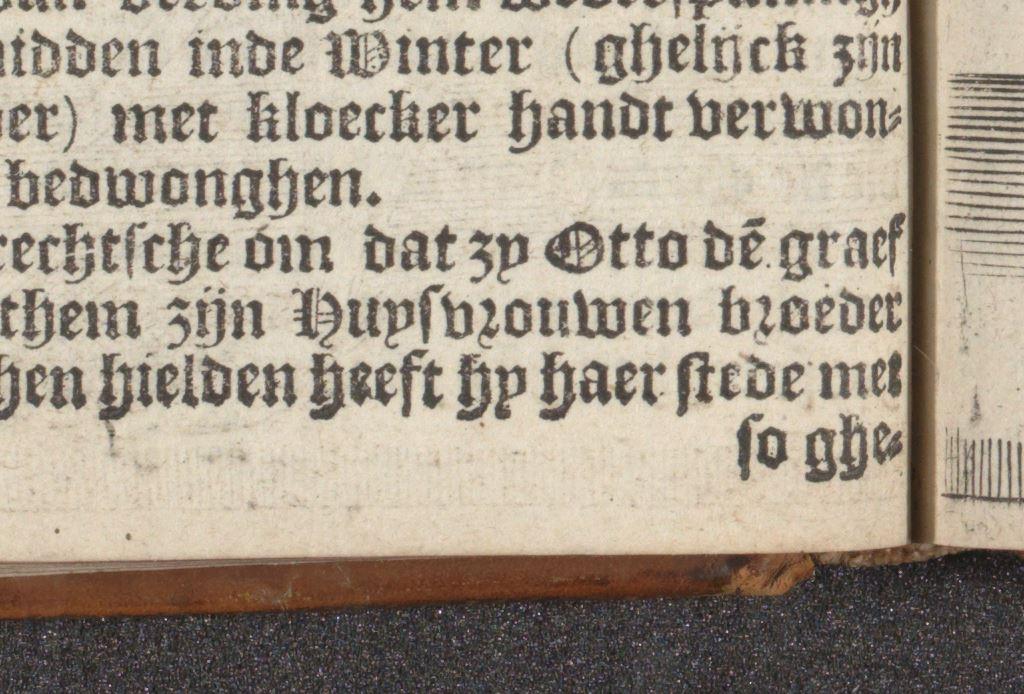 hem wederspannigh
midden inde Winter (ghelijck zijn
er) met kloecker handt verwon-
bedwonghen.
rechtsche om dat zy Otto dē graef
them zijn Huysvrouwen broeder
hen hielden heeft hy haer stede met
so ghe-